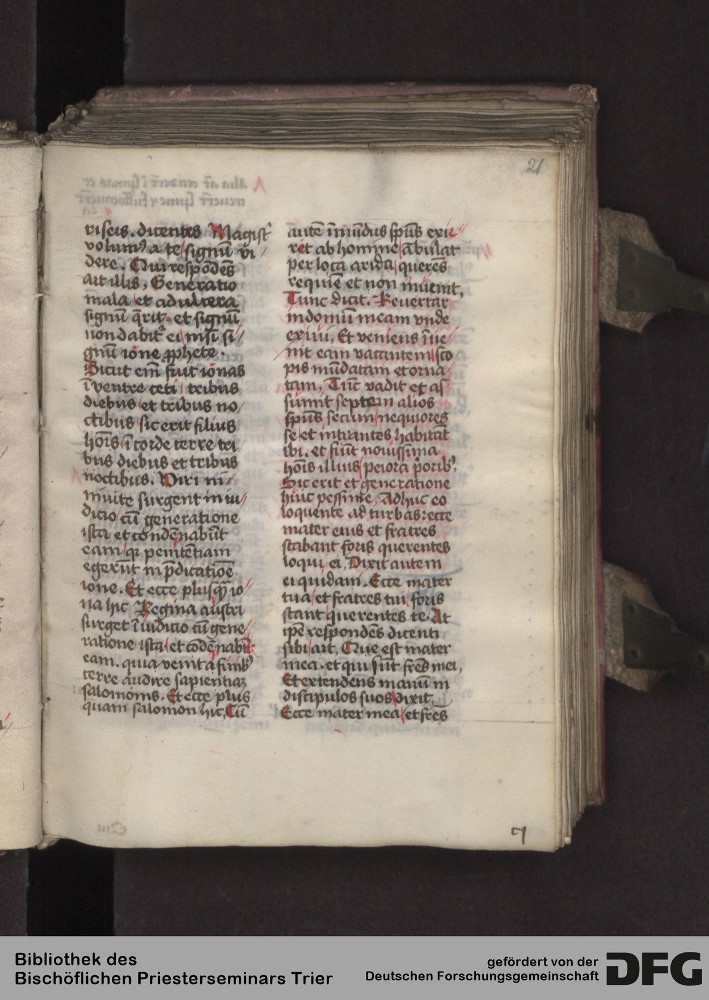 21
riseis. dicentes Magist̄
volumꝰ a te signū vi
dere. Qui respōdēs
ait illis, Generatio
mala et adultera
signū q̄rit. et signū
non dabit᷑ ei nisi si/
gnū ione ꝓphete.
Sicut em̄ fuit ionas
ī ventre ceti tribus
diebus et tribus no/
ctibus sic erit filius
hoīs ī corde terre tri
bus diebus et tribus
noctibus. Viri ni/
niuite surgent in iu/
dicio cū generatione
ista et condēnabūt
eam. qꝛ penitētiam
egerūt in p̄dicatiōe
ione. Et ecce plusq̄ȝ io/
na hic Regina austri
surget ī iudicio cū gene/
ratione ista et cōdēnabit
eam. quia venit a finibꝰ
terre audire sapientiaȝ
salomonis. Et ecce plus
quam salomon hic, Cū
autē īmūdus sp̄us exie
ret ab homine ābulat
per loca arida querēs
requiē et non inuenit,
Tunc dicit. Reuertar
in domū meam vnde
exiui, Et veniens īue/
nit eam vacantem sco
pis mūdatam et orna/
tam, Tūc vadit et as/
sumit septem alios
sp̄us secum nequiores
se et intrantes habitāt
ibi. et fiūt nouissima
hoīs illius peiora p̄orib᷒
Sic erit et generatione
huic pessime. Adhuc eo
loquente ad turbas: ecce
mater eius et fratres
stabant foris querentes
loqui ei, Dixit autem
ei quidam. Ecce mater
tua et fratres tui foris
stant querentes te. At
ip̄e respondēs dicenti
sibi ait, Que est mater
mea. et qui sūt fr̄es mei,
Et extendens manū in
discipulos suos dixit.
Ecce mater mea et fr̄es
Bibliothek des
Bischöflichen Priesterseminars Trier
gefördert von der
Deutschen Forschungsgemeinschaft
DFG